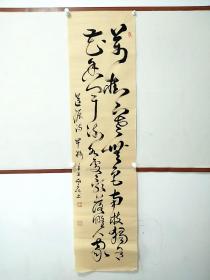 萬樹寒無色南枝獨有
花香聞流水處影落野人家
道源詩早梅